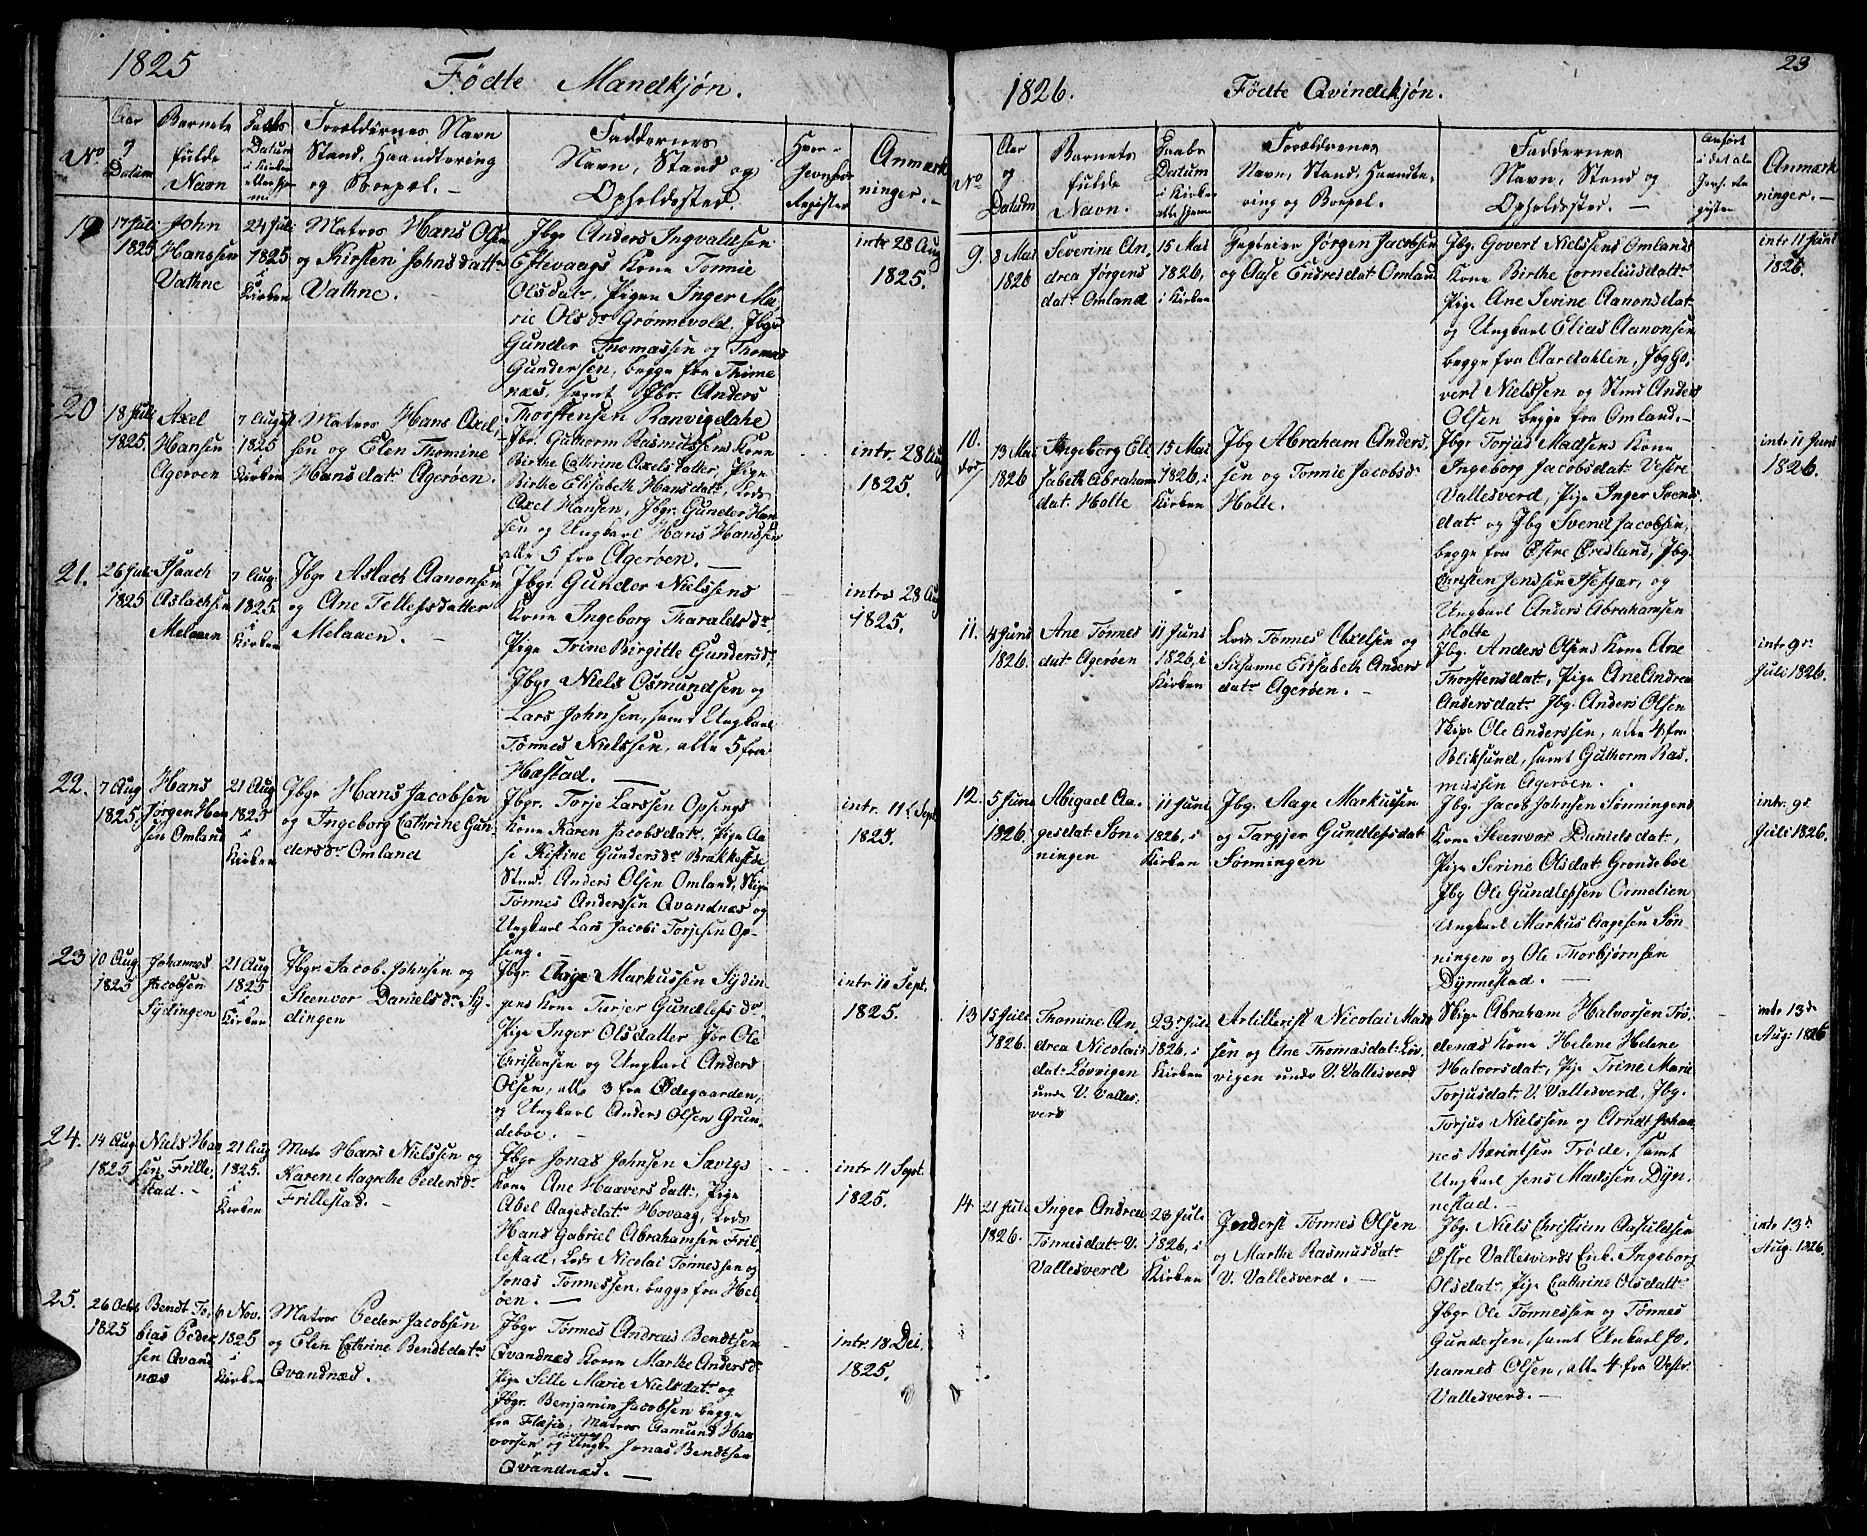 1825
Fødte Mandkjøn.
No
Aar
og
Datum
Barnets
fulde
Navn
Daabs
Datum
i Kirken
eller hje
me
Forældrenes Navn
Stand, Haandtering
og Boepæl. -
Faddernes
Navn, Stand og
Opholdssted.
Hen-
Jevnførs
Register
Anmærk
ninger. -
19
17 Juli
1825
John
Hanssen
Vathne
24 Juli
1825
i
Kirken
Matros Hans Olsen
og Kirsten Johnsdatter
Vathne. -
Jbgr Anders Ingvaldsen
Eftevaags Kone Tonnie
Olsdatr, Pigen Inger Ma-
rie Olsdr Grønnevold, Jbgr
Gunder Thomassen og Thomas
Gundersen, begge fra Thime
næs, samt Jbr. Anders
Thorstensen Ranvigdahe
intr 28 Aug
1825.
20
18 Juli
1825.
Axel
Hansen
Agerøen
7 August
1825
i
Kirken
Matros Hans Axel-
sen og Elen Thomine
Hansdatr Agerøen.
Jbr. Guthorm Rasmussens Kone
Birthe Cathrine Axelsdatter, Pige
Birthe Elisabeth Hansdatr, Lods
Axel Hansen, Jbgr. Gunder Han
sen og Ungkarl Hans Hanssen
alle 5 fra Agerøen. -
intr. 28 Aug
1825.
21.
26 Juli
1825
Isaach
Aslachsen
Melaaen
7 Aug.
1825
i
Kirken
Jbgr Aslach Aanonsen
og Ane Tellefsdatter
Melaaen. -
Jbgr Gunder Nielssens
Kone Ingeborg Tharaldsdr.
Pige Trine Birgitte Gundersdr,
Jbgr Niels Osmundsen og
Lars Johnsen, samt Ungkarl
Tønnes Nielssen, alle 5 fra
Hæstad. -
intro 28 Aug
1825.
22.
7 Aug
1825
Hans
Jørgen Han
sen Omland
21 Aug
1825
i
Kirken
Jbgr Hans Jacobsen
og Ingeborg Cathrine Gun-
dersdr Omland
Jbgr. Torje Larssen Opsings
Kone Karen Jacobsdatr, Pige Aa-
se Kistine Gundersdr Brækkestøe
Stmd. Anders Olsen Omland, Skipr
Tønnes Anderssen Qvandnæs og
Ungkarl Lars Jacobs Torjesen Op-
sing.
intr. 11t Sept.
1825.
23
10 Aug
1825
Johannes
Jacobsen
Sydingen
21 Aug
1825
i
Kirken
Jbgr. Jacob Johnsen og
Steenvor Danielsdr Sy-
dingen
Jbgr. Aage Markussen Sydin-
gens Kone Tarjer Gundlefsdr.
Pige Inger Olsdatter Jbr Ole
Christensen og Ungkarl Anders
Olsen, alle 3 fra Ødegaarden,
og Ungkarl Anders Olsen Grun-
deboe. -
intr 11 Sept.
1825.
24.
14 Aug
1825
Niels Han
sen Frille-
stad. -
21 Aug
1825.
i
Kirken
Matr Hans Nielssen og
Karen Magrethe Pedersdr
Frillestad. -
Jbgr Jonas Johnsen Sævigs
Kone Ane Haaversdatr, Pige
Abel Aagesdatr Hovaag, Lods
Hans Gabriel Abrahamsen Fril-
lestad, Lods Nicolai Tønnessen og
Jonas Tønnessen, begge fra Hel-
øen. -
intr 11 Sept.
1825.
25.
26 Octbr
1825
Bendt To-
bias Peder
sen Qvand
næs
6 Nov.
1825
i
Kirken
Matros Peder Jacobsen
og Elen Cathrine Bendtdatr
Qvandnæs.
Jbgr Tønnes Andreas Bendtsen
Qvandnæs Kone Marthe Andersdr
Pige Sille Marie Nielsdatr og
Jbgr. Benjamin Jacobsen begge
fra Flæsie, Matros Aamund Haa
vorsen og Ungk. Jonas Bendtsen
Qvandnæs. -
intr 18 Dei.
1825.
23
1826.
Fødte Qvindekjøn.
No
Aar
og
Datum
Barnets
fulde
Navn.
Daabs
Datum
i Kirken
eller hjem
Forældrenes
Navn, Stand, Haandte-
ring og Boepæl. -
Faddernes
Navn, Stand og
Opholdssted. -
Anført
i det al.
Jevnf. Re
gister
Anmærk
ninger. -
9
3 Mai
1826
Severine An-
drea Jørgens
datr Omland
15 Mai
1826,
i Kirken
Jørgen Jacobsen
og Aase Endresdat Omland
Jbg. Govert Nielssens Omlands
Kone Birthe Corneliusdatr
Pige Ane Serine Aanonsdat
og Ungkarl Elias Aanonsen
begge fra Aardahlen, Jbg Go-
vert Nielssen og Stmd Anders
Olsen begge fra Omland. -
intr 11 Juni
1826.
10.
13 Mai
1826
Ingeborg Eli
sabeth Abraham
dat: Holte
15 Mai
1826, i
Kirken
Jbg Abraham Anders-
sen og Tonnie Jacobsdr
Holte.
Jbgr Torjus Madsens Kone
Ingeborg Jacobsdat: Vestre
Vallesverd, Pige Inger Svends
dat: og Jbg Svend Jacobsen,
begge fra Østre Øredland, Jbg.
Christen Jenssen Isefjær, og
Ungkarl Anders Abrahamsen
Holte
intr 11 Juni
1826.
11.
4 Juni
1826.
Ane Tønnes
dat: Agerøen
11 Juni
1826, i
Kirken
Lods Tønnes Axelsen og
Susanne Elisabeth Anders
datr Agerøen. -
Jbg. Anders Olsens Kone Ane
Thorstensdat:, Pige Ane Andrea
Andersdat: Jbg. Anders Olsen
Skipr Ole Anderssen, alle 4 fra
Bliksund, samt Guthorm Ras-
mussen Agerøen. -
intr 9r
Juli 1826.
12.
5 Juni
1826
Abigael Aa-
gesdat Søn-
ningen
11 Juni
1826, i
Kirken
Jbg. Aage Markussen
og Targjer Gundlefsdat
Sønningen
Jbg. Jacob Johnsen Sønningens
Kone Steenvor Danielsdat,
Pige Serine Olsdat: Grondeboe
Jbg Ole Gundlefssen Cornelien
Ungkarl Markus Aagesen Søn-
ningen og Ole Thorbjørnsen
Dynnestad. -
intr. 9r
Juli 1826.
13
15 Juli
1826.
Thomine An-
drea Nicolai
dat: Løvvigen
under V. Valles-
verd
23r Juli
1826, i
Kirken
Artillerist Nicolai Mad
sen og Ane Thomasdat: Løv-
vigen under V. Vallesverd
Skipr Abraham Halvorsen Trø-
denæs Kone Helene Helene
Halvorsdat, Pige Trine Marie
Torjusdat V. Vallesverd, Jbg.
Torjus Nielssen og Arndt Johan
nes Berintsen Trøde, samt
Ungkarl Jens Madssen Dyn-
nestad. -
intr 13de
Aug: 1826
14
21 Juli
1826.
Inger Andrea
Tønnesdat: V.
Vallesverd
23 Juli
1826, i
Kirken
Inderst Tønnes Olsen
og Marthe Rasmusdatr
V. Vallesverd. -
Jbg. Niels Christian Aasuldsen
Østre Vallesverds Enk. Ingeborg
Olsdat: Pige Cathrine Olsdatr
Jbgr Ole Tønnessen og Tønnes
Gundersen, samt Unkarl Jo-
hannes Olsen, alle 4 fra Vestr
Vallesverd. -
intr 13de
Aug. 1826.